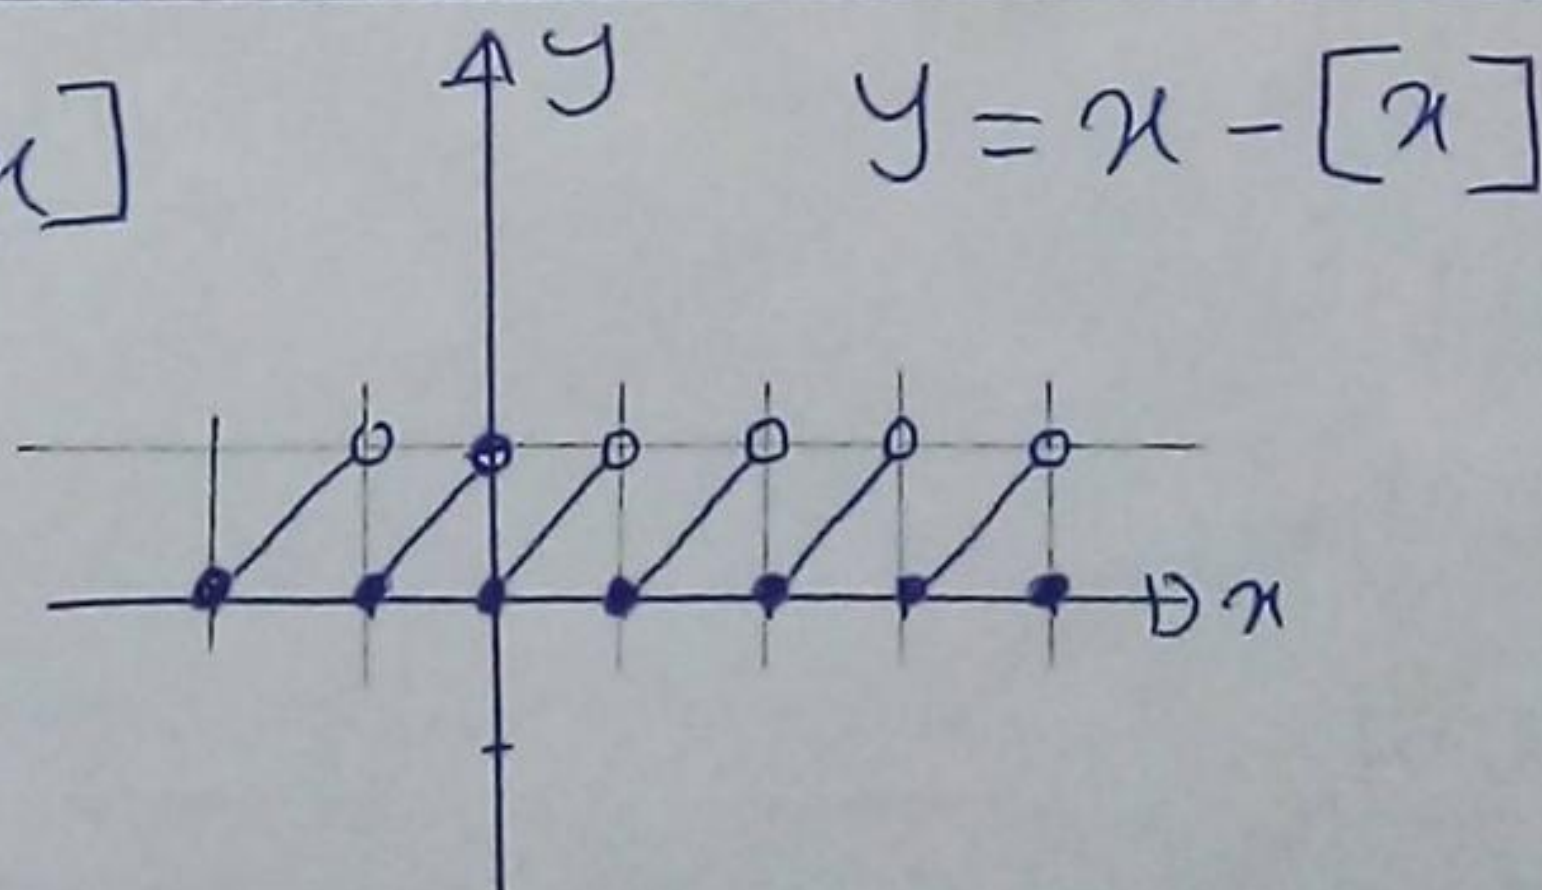 y
y = x - [x]
x